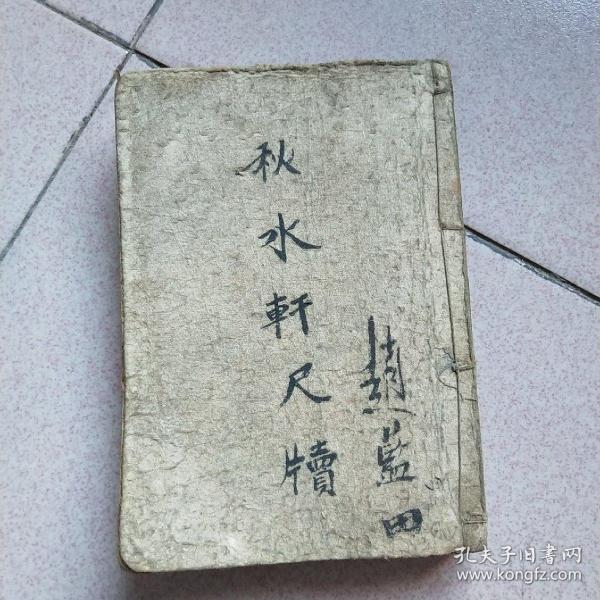 秋水軒尺牘
趙藍田
孔夫子旧書网
www.kongfz.com